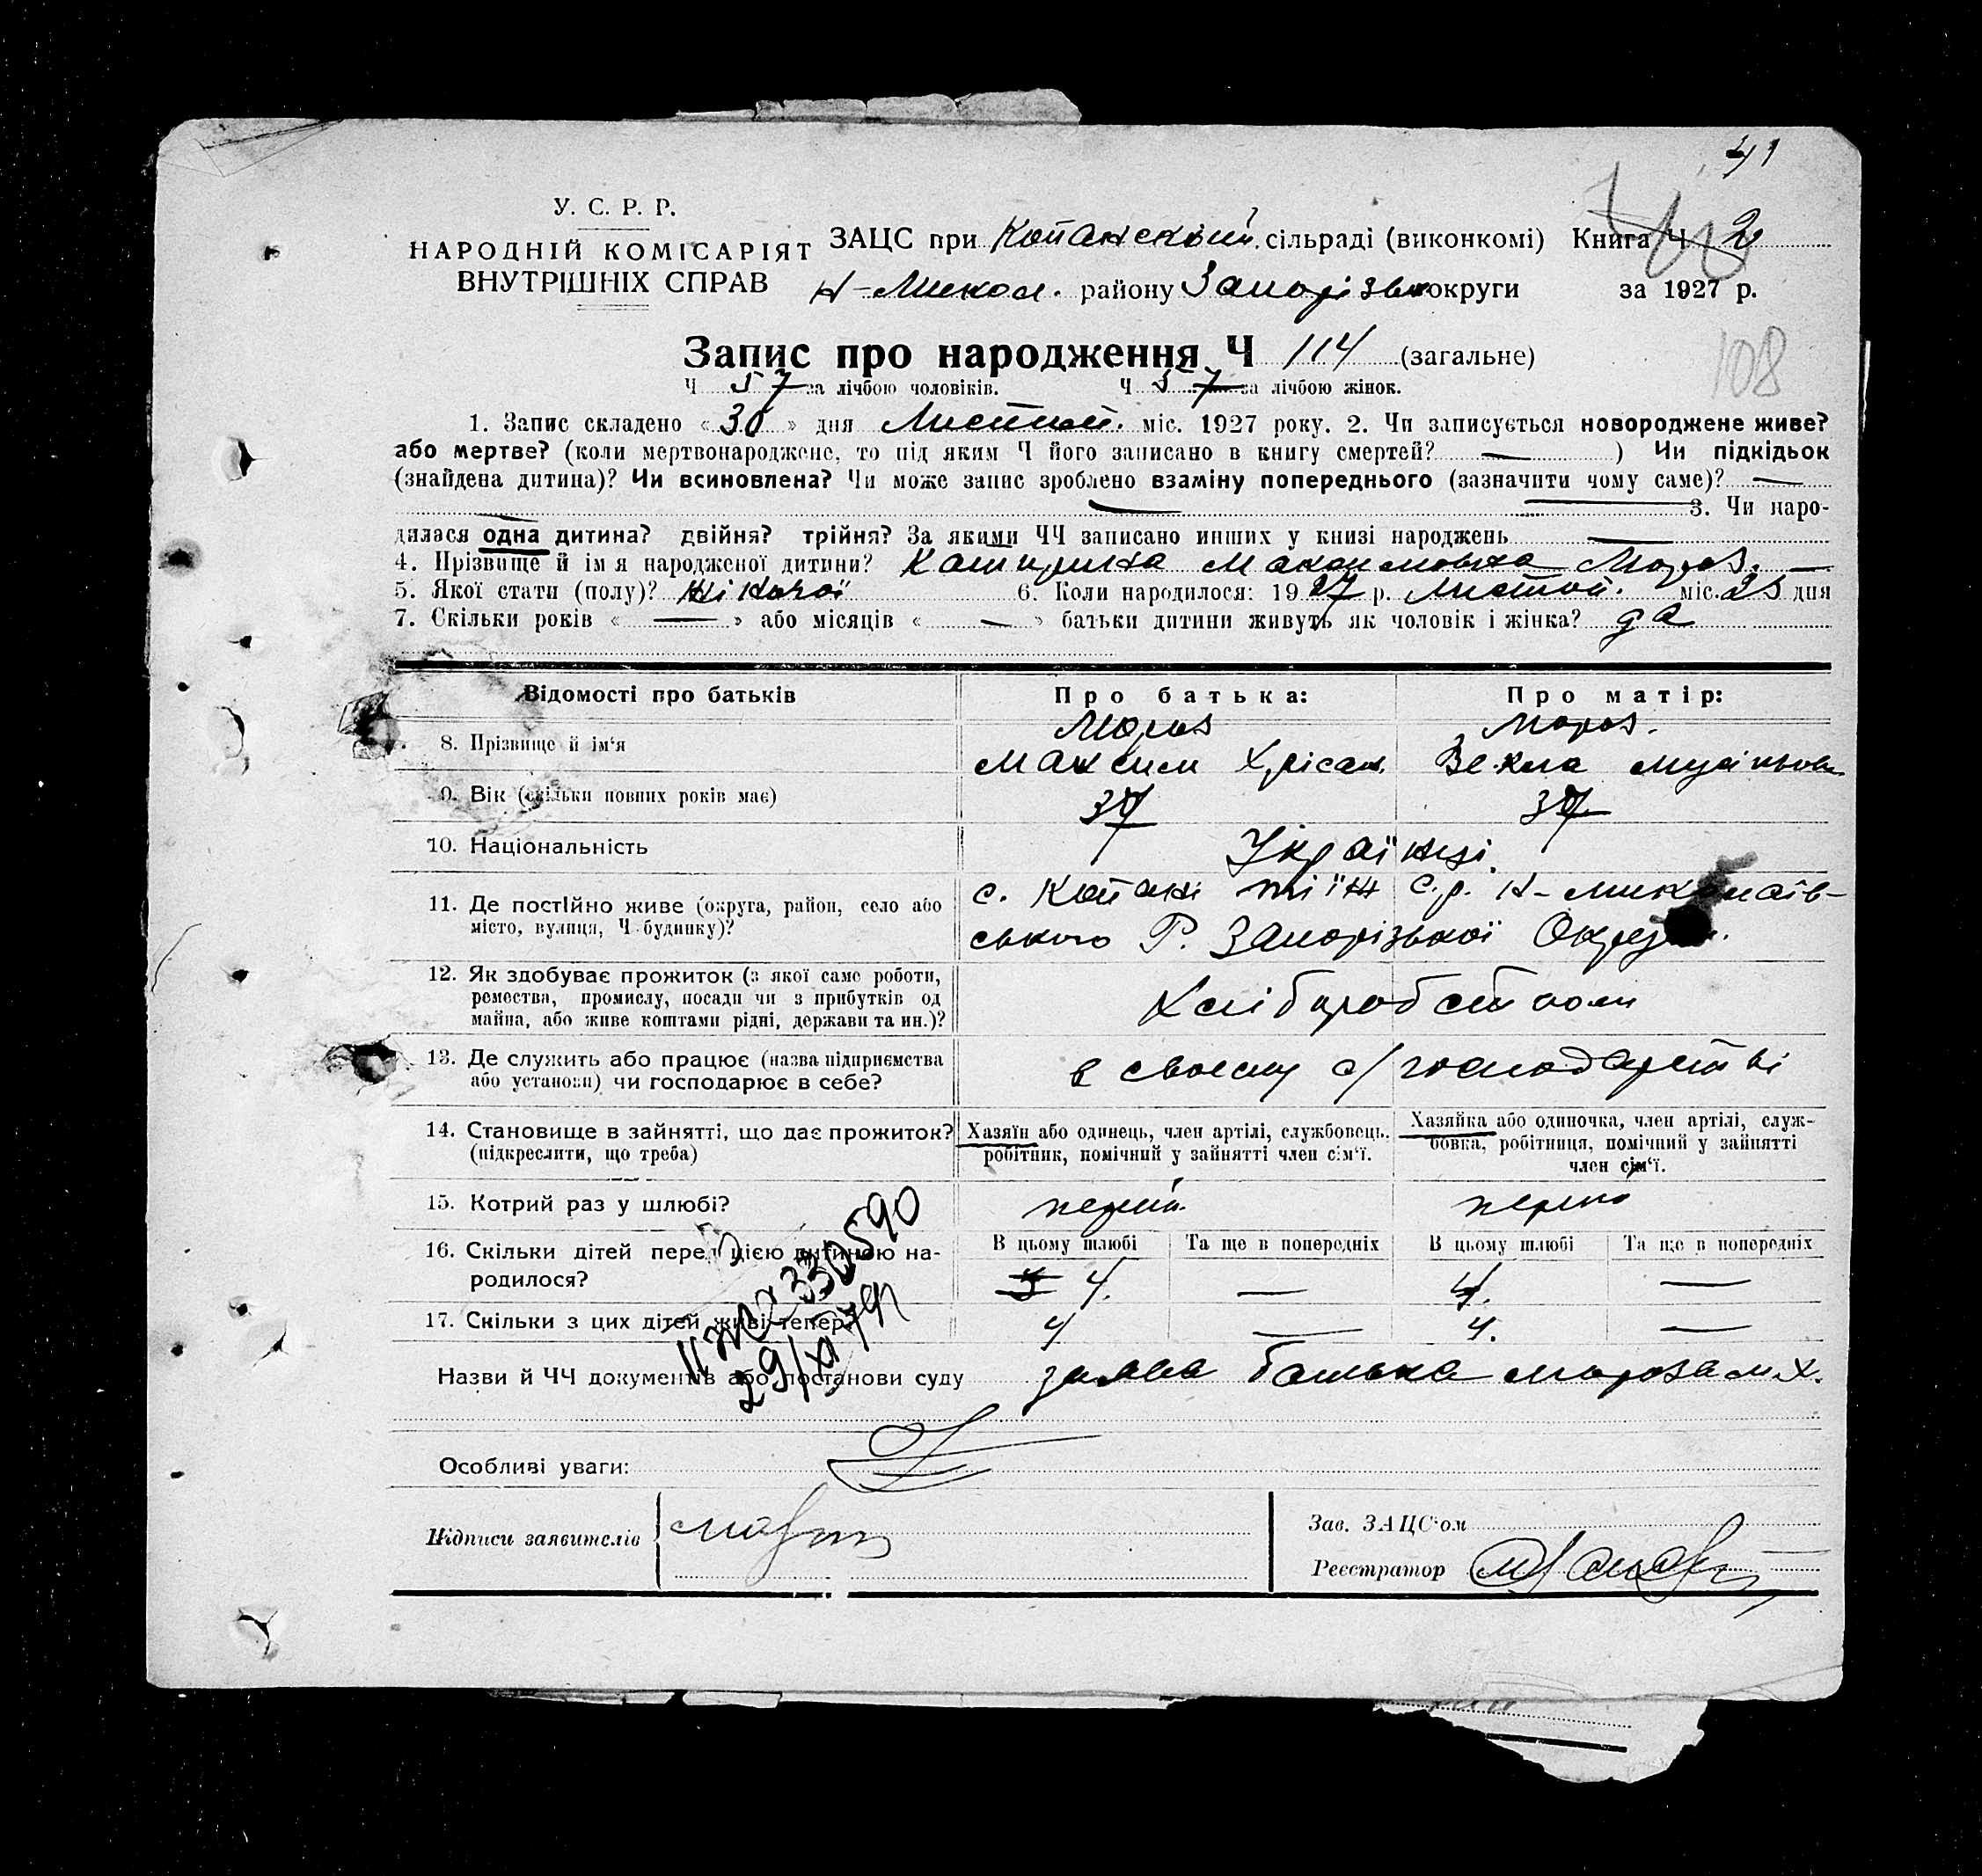 41
У. С. Р. Р.
НАРОДНІЙ КОМІСАРІЯТ
ВНУТРІШНІХ СПРАВ
ЗАЦС при Копанській сільраді (виконкомі) Книга Ч 2
Н-Микол. району Запорізьк округи за 1927 р.
Запис про народження Ч 114 (загальне)
108
Ч 57 за лічбою чоловіків. Ч 57 за лічбою жінок.
1. Запис складено «30» дня Листпад. міс. 1927 року. 2. Чи записується новороджене живе?
або мертве? (коли мертвонароджене, то під яким Ч його записано в книгу смертей? — ) Чи підкідьок
(знайдена дитина)? Чи всиновлена? Чи може запис зроблено взаміну попереднього (зазначити чому саме)? —
— 3. Чи наро-
дилася одна дитина? двійня? трійня? За якими ЧЧ записано инших у книзі народжень —
4. Прізвище й ім я народженої дитини? Катирина Максимовна Мороз. —
5. Якої стати (полу)? жіночої 6. Коли народилося: 1927 р. Листоп. міс. 25 дня
7. Скільки років « — » або місяців « — » батьки дитини живуть як чоловік і жінка? да
Відомості про батьків Про батька: Про матір:
8. Прізвище й ім'я Мороз Максим Хрісан. Мороз. Векла
9. Вік (скільки повних років має) 37 37
10. Національність Українці.
11. Де постійно живе (округа, район, село або
місто, вулиця, Ч будинку)?
с. Копані с.р. Н-Миколаїв-
ського Р. Запорізької Округи.
12. Як здобуває прожиток (з якої саме роботи,
ремества, промислу, посади чи з прибутків од
майна, або живе коштами рідні, держави та ин.)?
Хлібробством
13. Де служить або працює (назва підприємства
або установи) чи господарює в себе?
в своему с/господарстві
14. Становище в зайнятті, що дає прожиток?
(підкреслити, що треба)
Хазяїн або одинець, член артілі, службовець.
робітник, помічний у зайнятті член сім'ї.
Хазяйка або одиночка, член артілі, служ-
бовка, робітниця, помічний у зайнятті
член сім'ї.
15. Котрий раз у шлюбі? перш. перши
16. Скільки дітей перед цією дитиною на-
родилося?
В цьому шлюбі Та ще в попередніх В цьому шлюбі Та ще в попередніх
4. — 4. —
17. Скільки з цих дітей живі тепер? 4 — 4. —
330590
29/XI 79
Назви й ЧЧ документів або постанови суду заява батька Мороза М.Х.
Особливі уваги:
Підписи заявителів Мороз
Зав. ЗАЦС'ом
Реєстратор